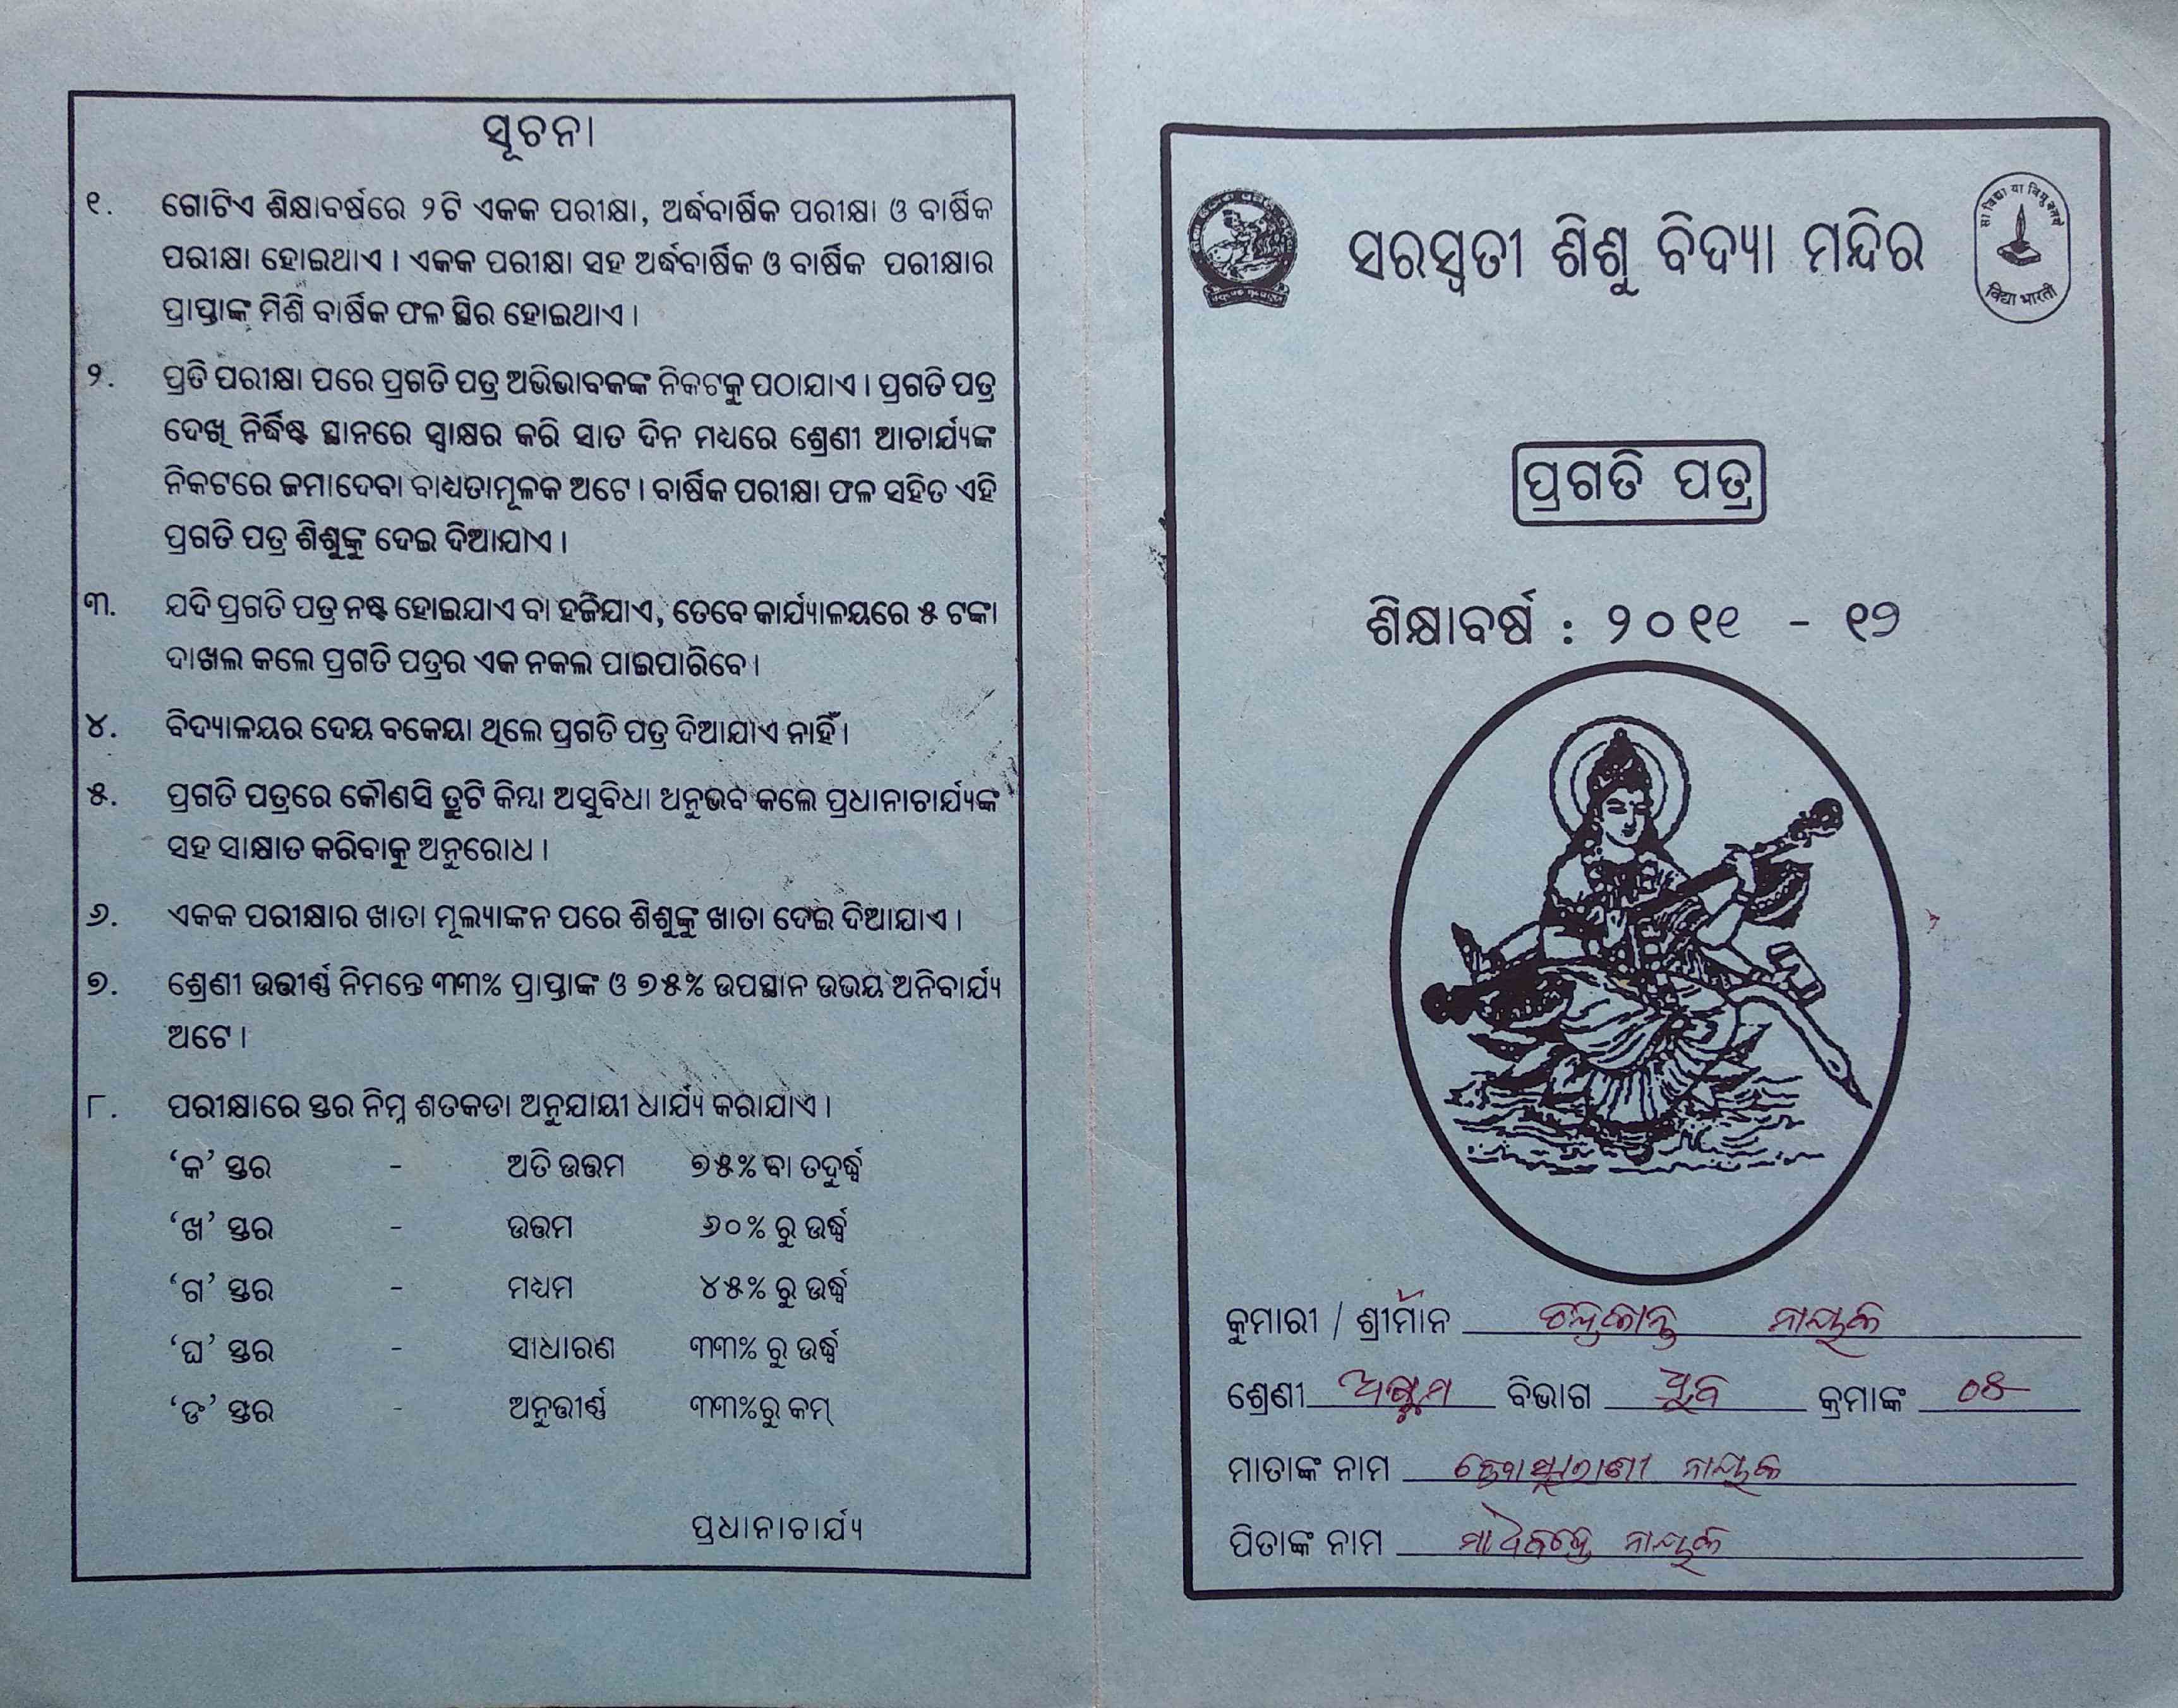 ସୂଚନା
୧. ଗୋଟିଏ ଶିକ୍ଷାବର୍ଷରେ ୨ଟି ଏକକ ପରୀକ୍ଷା, ଅର୍ଦ୍ଧବାର୍ଷିକ ପରୀକ୍ଷା ଓ ବାର୍ଷିକ
ପରୀକ୍ଷା ହୋଇଥାଏ । ଏକକ ପରୀକ୍ଷା ସହ ଅର୍ଦ୍ଧବାର୍ଷିକ ଓ ବାର୍ଷିକ ପରୀକ୍ଷାର
ପ୍ରାପ୍ତାଙ୍କ ମିଶି ବାର୍ଷିକ ଫଳ ସ୍ଥିର ହୋଇଥାଏ ।
୨. ପ୍ରତି ପରୀକ୍ଷା ପରେ ପ୍ରଗତି ପତ୍ର ଅଭିଭାବକଙ୍କ ନିକଟକୁ ପଠାଯାଏ । ପ୍ରଗତି ପତ୍ର
ଦେଖି ନିର୍ଦ୍ଧିଷ୍ଟ ସ୍ଥାନରେ ସ୍ୱାକ୍ଷର କରି ସାତ ଦିନ ମଧ୍ୟରେ ଶ୍ରେଣୀ ଆଚାର୍ଯ୍ୟଙ୍କ
ନିକଟରେ ଜମାଦେବା ବାଧ୍ୟତାମୂଳକ ଅଟେ । ବାର୍ଷିକ ପରୀକ୍ଷା ଫଳ ସହିତ ଏହି
ପ୍ରଗତି ପତ୍ର ଶିଶୁଙ୍କୁ ଦେଇ ଦିଆଯାଏ ।
୩. ଯଦି ପ୍ରଗତି ପତ୍ର ନଷ୍ଟ ହୋଇଯାଏ ବା ହଜିଯାଏ, ତେବେ କାର୍ଯ୍ୟାଳୟରେ ୫ ଟଙ୍କା
ଦାଖଲ କଲେ ପ୍ରଗତି ପତ୍ରର ଏକ ନକଲ ପାଇପାରିବେ ।
୪. ବିଦ୍ୟାଳୟର ଦେୟ ବକେୟା ଥିଲେ ପ୍ରଗତି ପତ୍ର ଦିଆଯାଏ ନାହିଁ ।
୫. ପ୍ରଗତି ପତ୍ରରେ କୌଣସି ତ୍ରୁଟି କିମ୍ବା ଅସୁବିଧା ଅନୁଭବ କଲେ ପ୍ରଧାନାଚାର୍ଯ୍ୟଙ୍କ
ସହ ସାକ୍ଷାତ କରିବାକୁ ଅନୁରୋଧ ।
୬. ଏକକ ପରୀକ୍ଷାର ଖାତା ମୂଲ୍ୟାଙ୍କନ ପରେ ଶିଶୁଙ୍କୁ ଖାତା ଦେଇ ଦିଆଯାଏ ।
୭. ଶ୍ରେଣୀ ଉତ୍ତୀର୍ଣ୍ଣ ନିମନ୍ତେ ୩୩% ପ୍ରାପ୍ତାଙ୍କ ଓ ୭୫% ଉପସ୍ଥାନ ଉଭୟ ଅନିବାର୍ଯ୍ୟ
ଅଟେ ।
୮. ପରୀକ୍ଷାରେ ସ୍ତର ନିମ୍ନ ଶତକଡା ଅନୁଯାୟୀ ଧାର୍ଯ୍ୟ କରାଯାଏ ।
‘କ’ ସ୍ତର - ଅତି ଉତ୍ତମ ୭୫% ବା ତଦୁର୍ଦ୍ଧ୍ୱ
‘ଖ’ ସ୍ତର - ଉତ୍ତମ ୬୦% ରୁ ଉର୍ଦ୍ଧ୍ୱ
‘ଗ’ ସ୍ତର - ମଧ୍ୟମ ୪୫% ରୁ ଉର୍ଦ୍ଧ୍ୱ
‘ଘ’ ସ୍ତର - ସାଧାରଣ ୩୩% ରୁ ଉର୍ଦ୍ଧ୍ୱ
‘ଙ’ ସ୍ତର - ଅନୁତ୍ତୀର୍ଣ୍ଣ ୩୩%ରୁ କମ୍
ପ୍ରଧାନାଚାର୍ଯ୍ୟ
ସରସ୍ୱତୀ ଶିଶୁ ବିଦ୍ୟା ମନ୍ଦିର
सा विद्या या विमुक्तये
विद्या भारती
ପ୍ରଗତି ପତ୍ର
ଶିକ୍ଷାବର୍ଷ : ୨୦୧୧ - ୧୨
କୁମାରୀ / ଶ୍ରୀମାନ ଚନ୍ଦ୍ରକାନ୍ତ ନାୟକ
ଶ୍ରେଣୀ ଅଷ୍ଟମ ବିଭାଗ ଧ୍ରୁବ କ୍ରମାଙ୍କ ୦୫
ମାତାଙ୍କ ନାମ ନାୟକ
ପିତାଙ୍କ ନାମ ନାୟକ